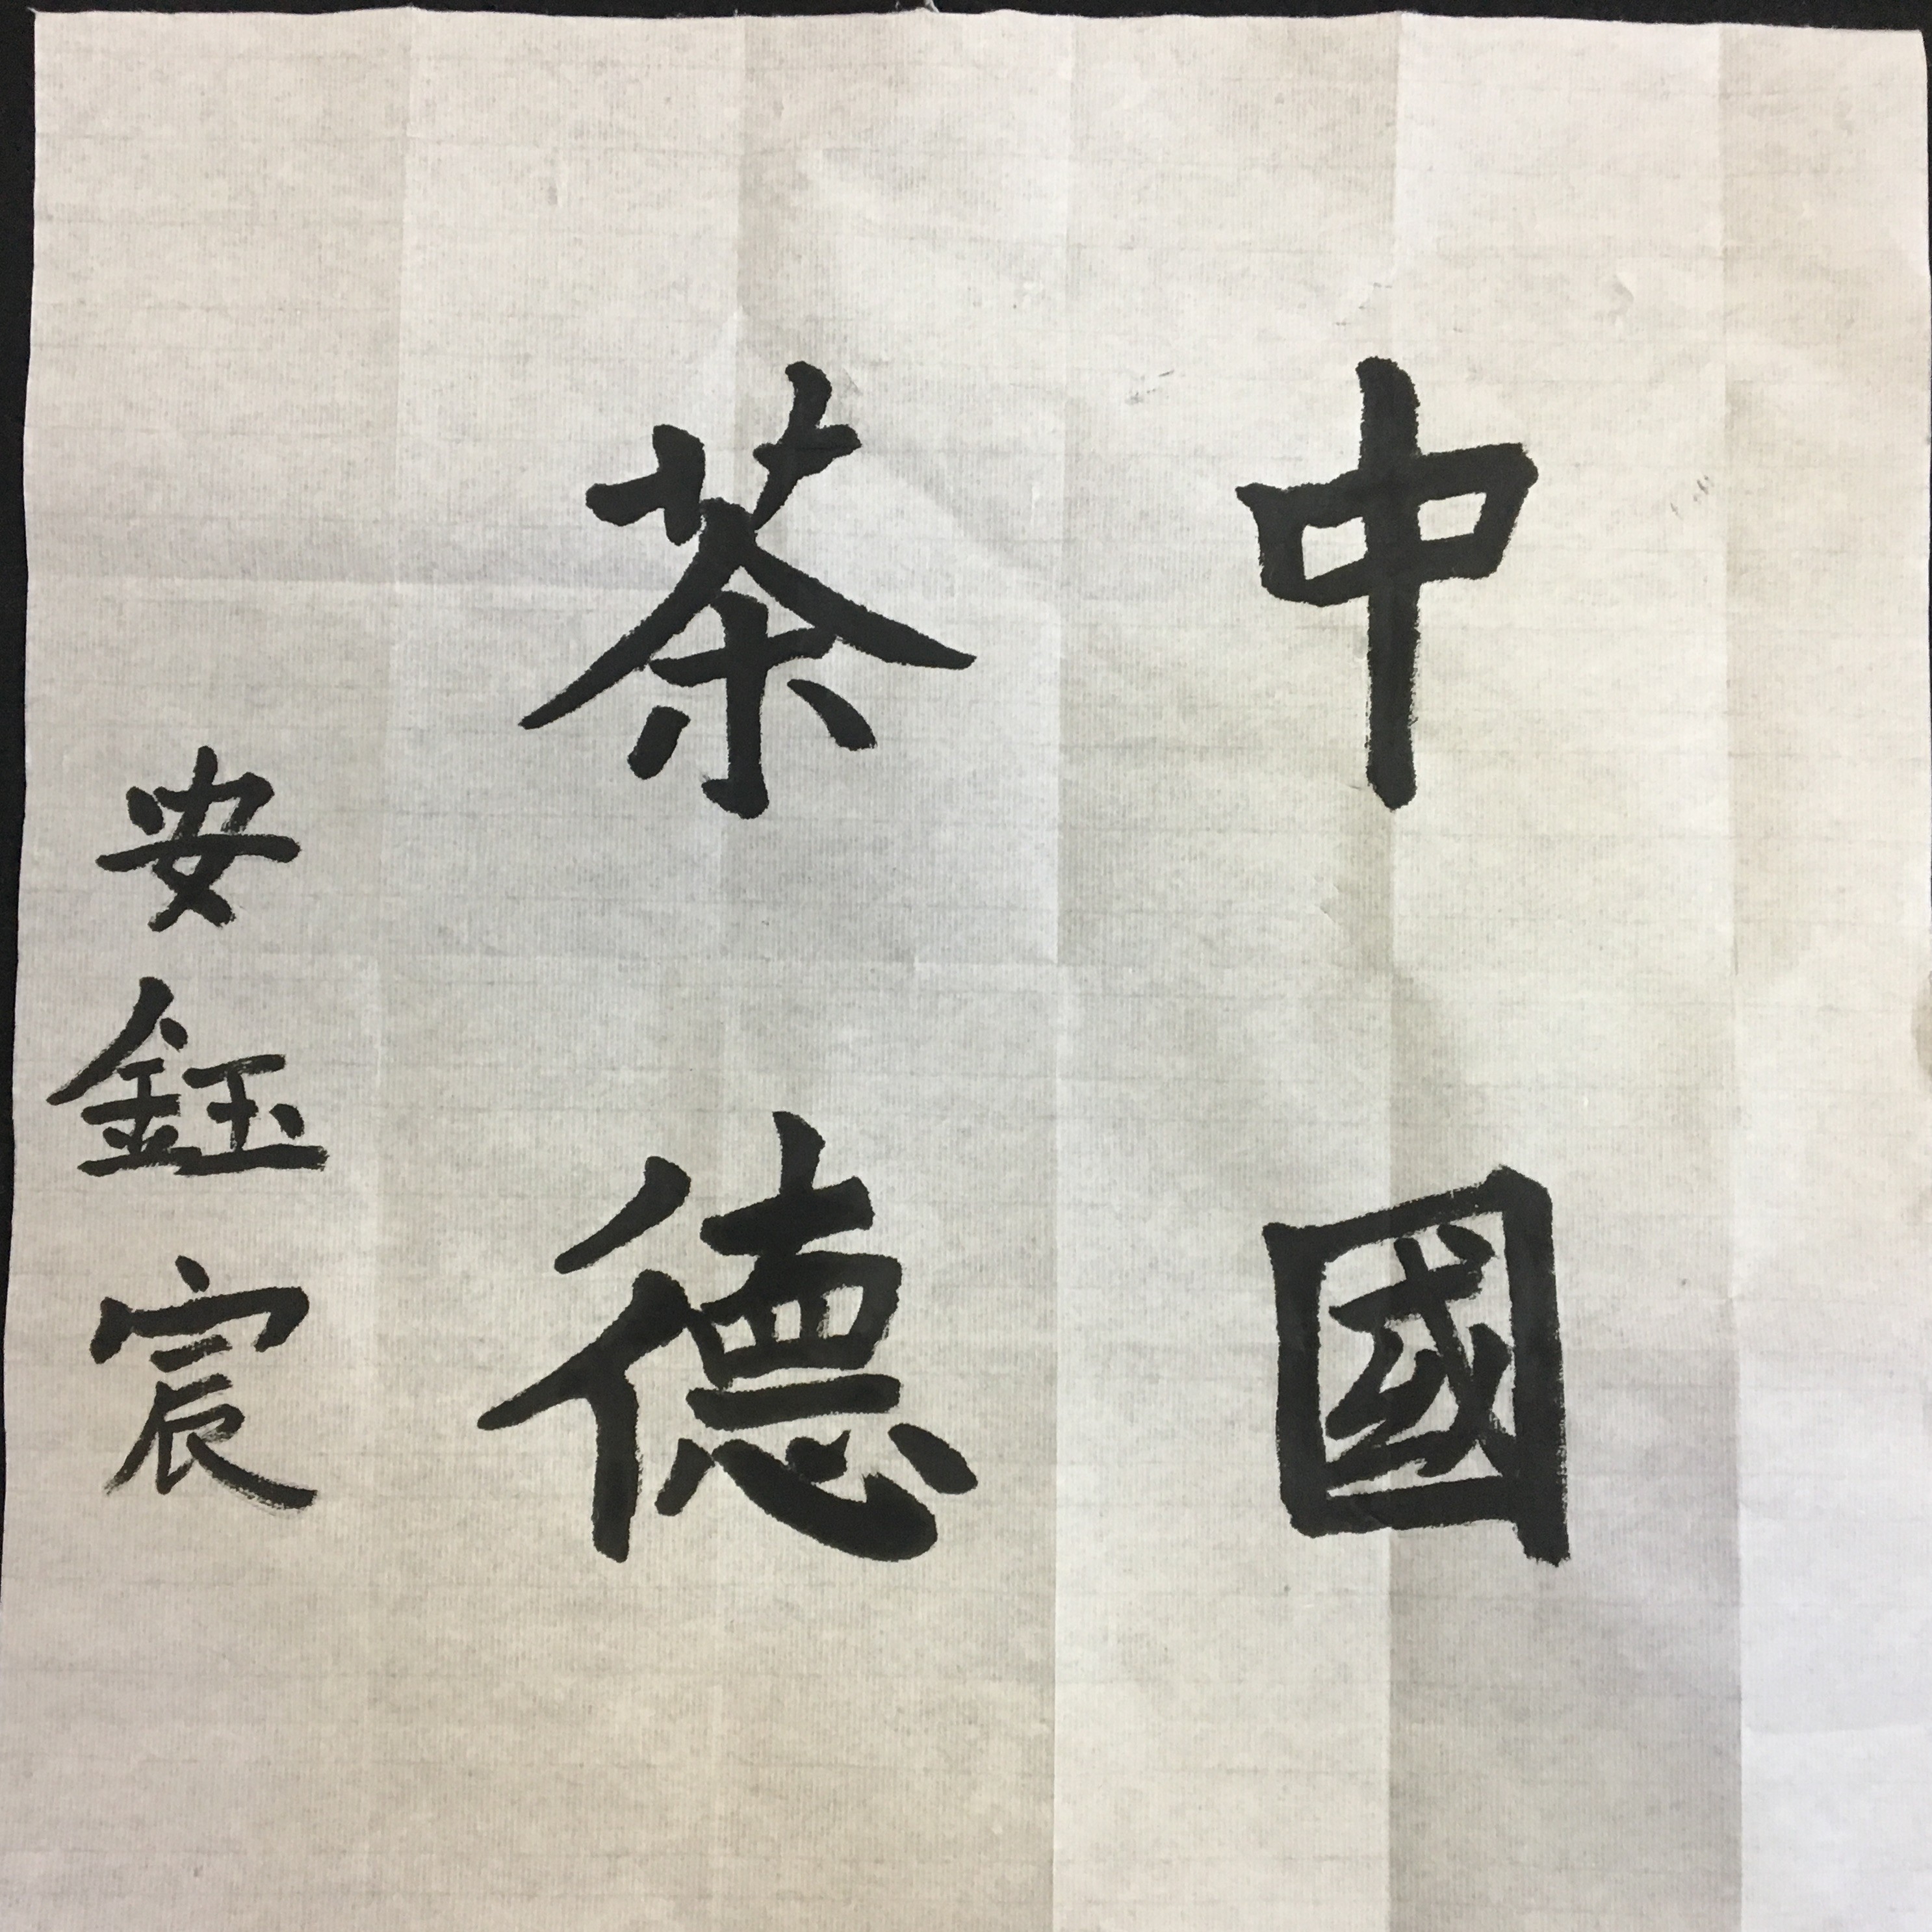 中國
茶德
安鈺宸